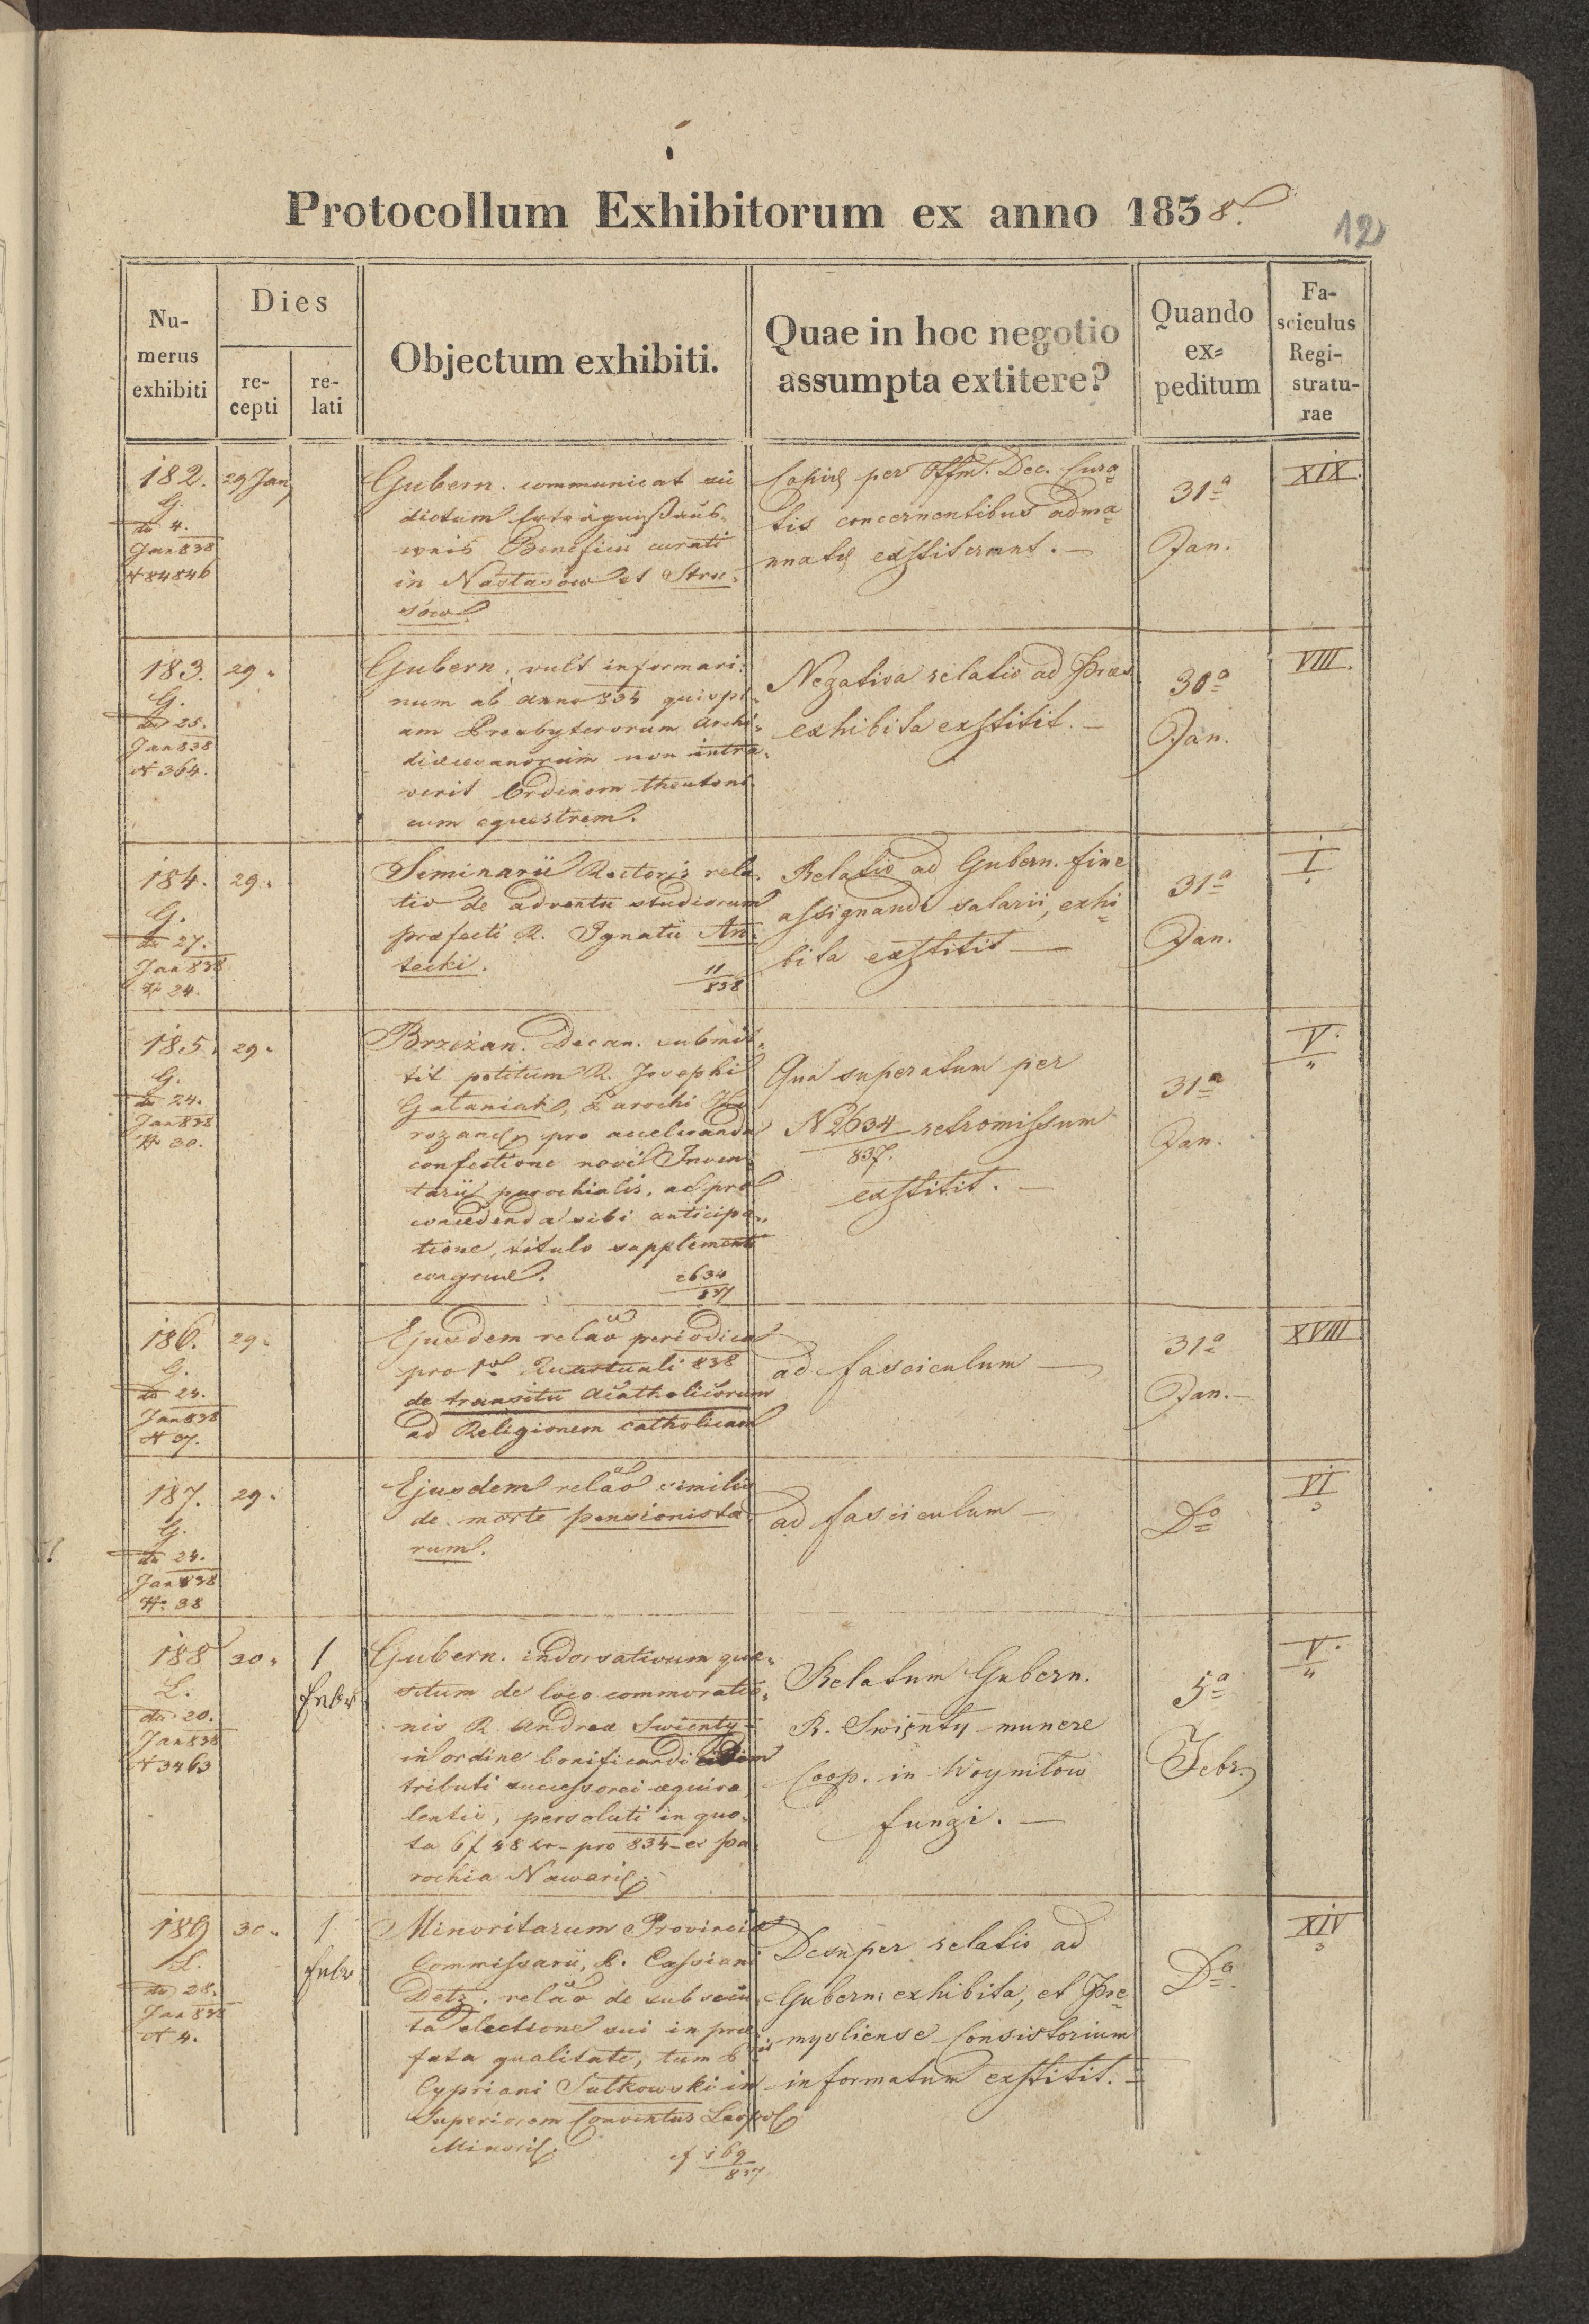 Protocollum Exhibitorum ex anno 1838.
12
Nu-
merus
exhibiti
Dies
re-
cepti
re-
lati
Objectum exhibiti.
Quae in hoc negotio
assumpta extitere?
Quando
ex=
peditum
Fa-
sciculus
Regi-
stratu-
rae
182.
G.
do 4.
Jan 838
N 84846
29 Jan
Gubern. communicat
dictum
Beneficii curati
in Nastasow et Stru-
sów.
Copiæ per Offm. Dec. Cura
tis concernentibus adma
nuatæ exstiterunt. —
31a
Jan.
XIX.
183.
G.
do 25.
Jan 838
N 364.
29 "
Gubern. vult informari:
num ab anno 834 quispi-
am Presbyterorum Archi-
diœcesanorum non intra-
verit Ordinem theutoni-
cum equestrem.
Negativa relatio ad Præs.
exhibita exstitit. —
30a
Jan.
VIII.
184.
G.
do 27.
Jan 838
No 24.
29 "
Seminarii Rectoris rela-
tio de adventu studiorum
præfecti R. Ignatii An-
tecki.
11
838
Relatio ad Gubern. fine
assignandi salarii, exhi
bita exstitit —
31a
Jan.
I
185.
G.
do 24.
Jan 838
No 30.
29 "
Brzeżan. Decan. submit-
tit petitum R. Josephi
Gataniak, Parochi
rozanæ, pro acceleranda
confectione novi Inven-
tarii parochialis, ac pro
concedenda sibi anticipa-
tione, titulo supplementi
congruæ.
2634
837
Qua superatum per
N 2634
837.
retromissum
exstitit. —
31a
Jan.
V.
4
186.
G.
do 24.
Jan 838
N 37.
29 "
Ejusdem relao periodica
pro 1o Quartuali 838
de transitu Acatholicorum
ad Religionem catholicam
ad fasciculum —
31a
Jan. —
XVIII
187.
G.
do 24.
Jan 838
No 38
29 "
Ejusdem relao similis
de morte pensionista-
rum.
ad fasciculum —
Do
VI
3
188
L.
do 20.
Jan 838
N 3463
30 "
1
Febr
Gubern. indorsativum quæ-
situm de loco commoratio-
nis R. Andreæ Swienty
in ordine bonificandi eidem
tributi successorei æquiva
lentis, persoluti in quo-
ta 6 f 48 xr - pro 834 - ex pa-
rochia Nawariæ. -
Relatum Gubern.
R. Swięnty munere
Coop. in Woynitow
fungi. —
5a
Febr.
V.
4
189
L.
do 28.
Jan 838
N 4.
30 "
1
Febr
Minoritarum Provinciæ
Commissarii, P. Cassiani
Detz. relao de subsecu-
ta electione sui in præ-
fata qualitate, tum P.
Cypriani Sutkowski in
Superiorem Conventus Leopol
Minoris.
cf 169
837
Desuper relatio ad
Gubern: exhibita, et Pre-
mysliense Consistorium
informatum exstitit. =
Do
XIV
3